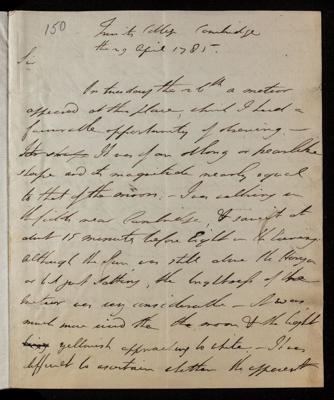 150
Trinity College Cambridge
the 29 April 1785.
Sir
On tuesday the 26th a meteor
appeared at this place, which I had a
favourable opportunity of observing. —
It was of an oblong or pearlike
shape and its magnitude nearly equal
to that of the moon. — I was walking in
the fields near Cambridge & saw it at
about 15 minutes before Eight in the Evening.
although the Sun was still above the Horizon
or but just setting, the brightness of the
meteor was very considerable — It was
much more vivid than the moon & the light
yellowish approaching to white — It was
difficult to ascertain whether the apparent